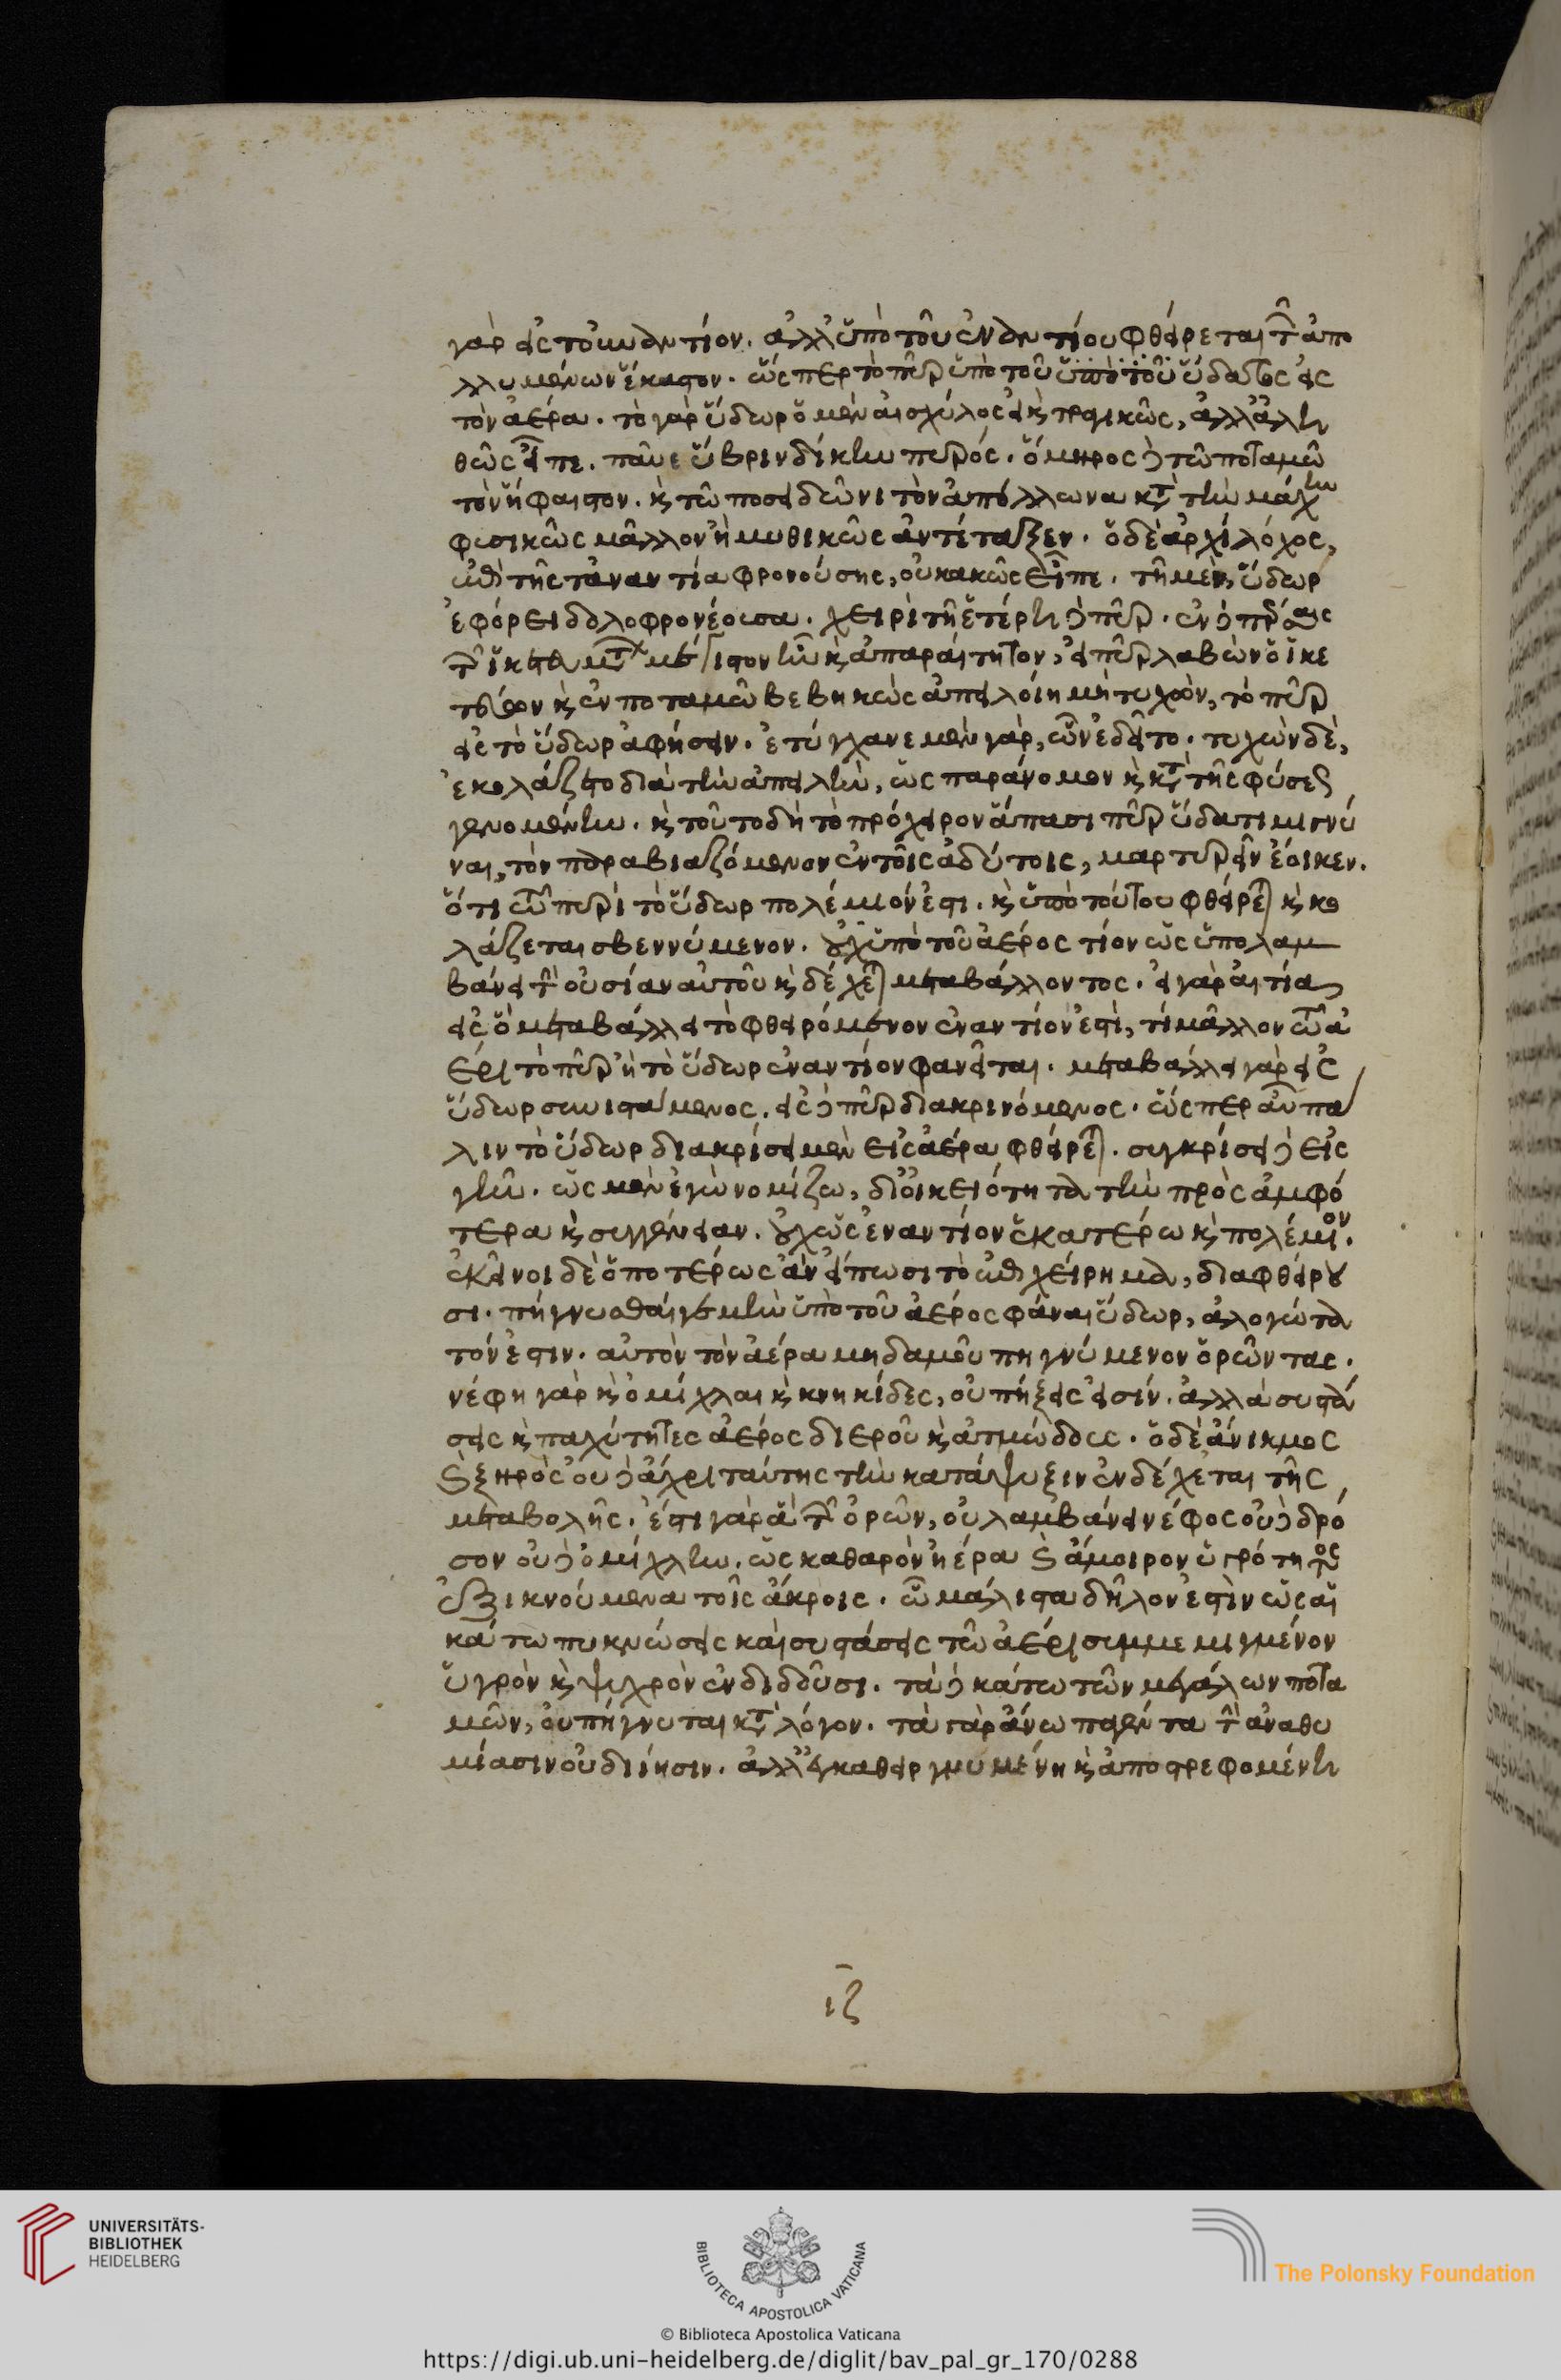 γὰρ εἰς τοὐναντίον. ἀλλ' ὑπὸ τοῦ ἐναντίου φθείρεται τῶν ἀπο
λλυμένων ἕκαστον. ὥσπερ τὸ πῦρ ὑπὸ τοῦ ὑπὸ τοῦ ὕδατος εἰς
τὸν ἀέρα. τὸ γὰρ ὕδωρ ὁ μὲν αἰσχύλος εἰ καὶ τραγικῶς, ἀλλ' ἀλη
θῶς εἶπε. παῦε ὕβριν δίκην πυρός. ὅμηρος δὲ τῶ ποταμῶ
τὸν ἥφαιστον. καὶ τῶ ποσειδῶνι τὸν ἀπόλλωνα κατὰ τὴν μάχην
φυσικῶς μᾶλλον ἢ μυθικῶς ἀντέταξεν. ὁ δὲ ἀρχίλοχος,
ἐπὶ τῆς τἀναντία φρονούσης, οὐ κακῶς εἶπε. τῆ μὲν, ὕδωρ
ἐφόρει δολοφρονέουσα. χειρὶ τῆ ἑτέρη δὲ πῦρ. ἐν δὲ πέρσαις
τῶν ἱκετευμάτων μέγιστον ἦν καὶ ἀπαραίτητον, εἰ πῦρ λαβὼν ὁ ἱκε
τεύων καὶ ἐν ποταμῶ βεβηκὼς ἀπειλοίη μὴ τυχὼν, τὸ πῦρ
εἰς τὸ ὕδωρ ἀφήσειν. ἐτύγχανε μὲν γὰρ, ὧν ἐδεῖτο. τυχὼν δὲ,
ἐκολάζετο διὰ τὴν ἀπειλὴν, ὡς παράνομον καὶ κατὰ τῆς φύσεως
γενομένην. καὶ τοῦτο δὴ τὸ πρόχειρον ἅπασι πῦρ ὕδατι μιγνύ
ναι, τὸν παραβιαζόμενον ἐν τοῖς ἀδύτοις, μαρτυρεῖν ἔοικεν.
ὅτι τῶ πυρὶ τὸ ὕδωρ πολέμιόν ἐστι. καὶ ὑπὸ τούτου φθείρεται καὶ κο
λάζεται σβεννύμενον. οὐχ ὑπὸ τοῦ ἀέρος τίον ὡς ὑπολαμ
βάνει τὴν οὐσίαν αὐτοῦ καὶ δέχεται μεταβάλλοντος. εἰ γὰρ αἰτία
εἰς ὃ μεταβάλλει τὸ φθειρόμενον ἐναντίον ἐστὶ, τί μᾶλλον τῶ ἀ
έρι τὸ πῦρ ἢ τὸ ὕδωρ ἐναντίον φανεῖται. μεταβάλλει γὰρ εἰς
ὕδωρ συνιστάμενος. εἰς δὲ πῦρ διακρινόμενος. ὥσπερ αὖ πά
λιν τὸ ὕδωρ διακρίσει μὲν εἰς ἀέρα φθείρεται. συγκρίσει δὲ εἰς
γῆν. ὡς μὲν ἐγὼ νομίζω, δι' οἰκειότητα τὴν πρὸς ἀμφό
τερα καὶ συγγένειαν. οὐχ ὡς ἐναντίον ἑκατέρω καὶ πολέμιον.
ἐκεῖνοι δὲ ὁποτέρως ἂν εἴπωσι τὸ ἐπιχείρημα, διαφθείρου
σι. πήγνυσθαί γε μὴν ὑπὸ τοῦ ἀέρος φάναι ὕδωρ, ἀλογώτα
τόν ἐστιν. αὐτὸν τὸν ἀέρα μηδαμοῦ πηγνύμενον ὁρῶντας.
νέφη γὰρ καὶ ὁμίχλαι καὶ κνηκίδες, οὐ πήξεις εἰσίν. ἀλλὰ συστά
σεις καὶ παχύτητες ἀέρος διεροῦ καὶ ἀτμώδους. ὁ δὲ ἄνικμος
καὶ ξηρὸς οὐδὲ ἄχρι ταύτης τὴν κατάψυξιν ἐνδέχεται τῆς
μεταβολῆς. ἔστι γὰρ ἃ τῶν ὀρῶν, οὐ λαμβάνει νέφος οὐδὲ δρό
σον οὐδὲ ὁμίχλην. ὡς καθαρὸν ἠέρα καὶ ἄμοιρον ὑγρότητος
ἐξικνούμενα τοῖς ἄκροις. ὧ μάλιστα δῆλον ἐστὶν ὡς αἱ
κάτω πυκνώσεις καὶ συστάσεις τῶ ἀέρι συμμεμιγμένον
ὑγρὸν καὶ ψυχρὸν ἐνδιδοῦσι. τὰ δὲ κάτω τῶν μεγάλων ποτα
μῶν, οὐ πήγνυται κατὰ λόγον. τὰ γὰρ ἄνω παγέντα τὴν ἀναθυ
μίασιν οὐ διίησιν. ἀλλ' ἐγκαθειργνυμένη καὶ ἀποστρεφομένη
ιζ
UNIVERSITÄTS-
BIBLIOTHEK
HEIDELBERG
BIBLIOTECA APOSTOLICA VATICANA
The Polonsky Foundation
© Biblioteca Apostolica Vaticana
https://digi.ub.uni-heidelberg.de/diglit/bav_pal_gr_170/0288